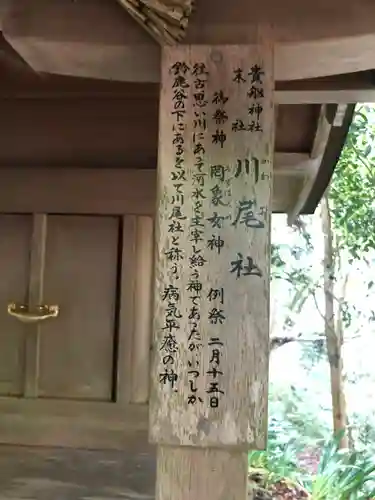 貴船神社
末社
川尾社
かわ
お
御祭神 罔象女神 例祭 二月十五日
みずはのめ
往古思い川にあって河水を主宰し給う神であったがいつしか
鈴鹿谷の下にあるを以て川尾社と称う、病気平癒の神、